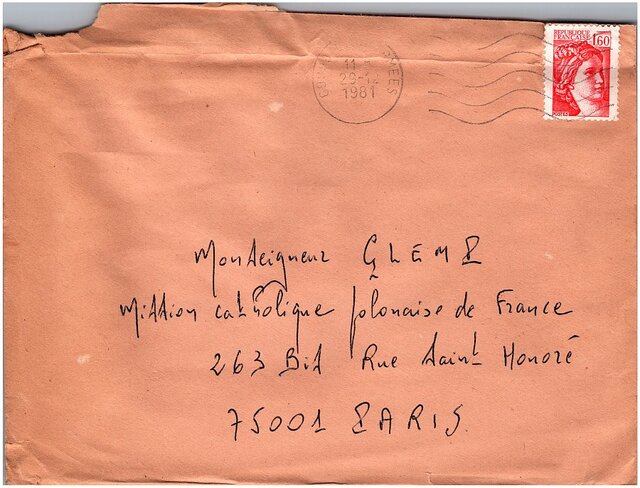 REPUBLIQUE
FRANÇAISE
1,60
11 H
29-12
1981
Monseigneur GLEMP
Mission catholique polonaise de France
263 Bis Rue Saint Honoré
75001 PARIS